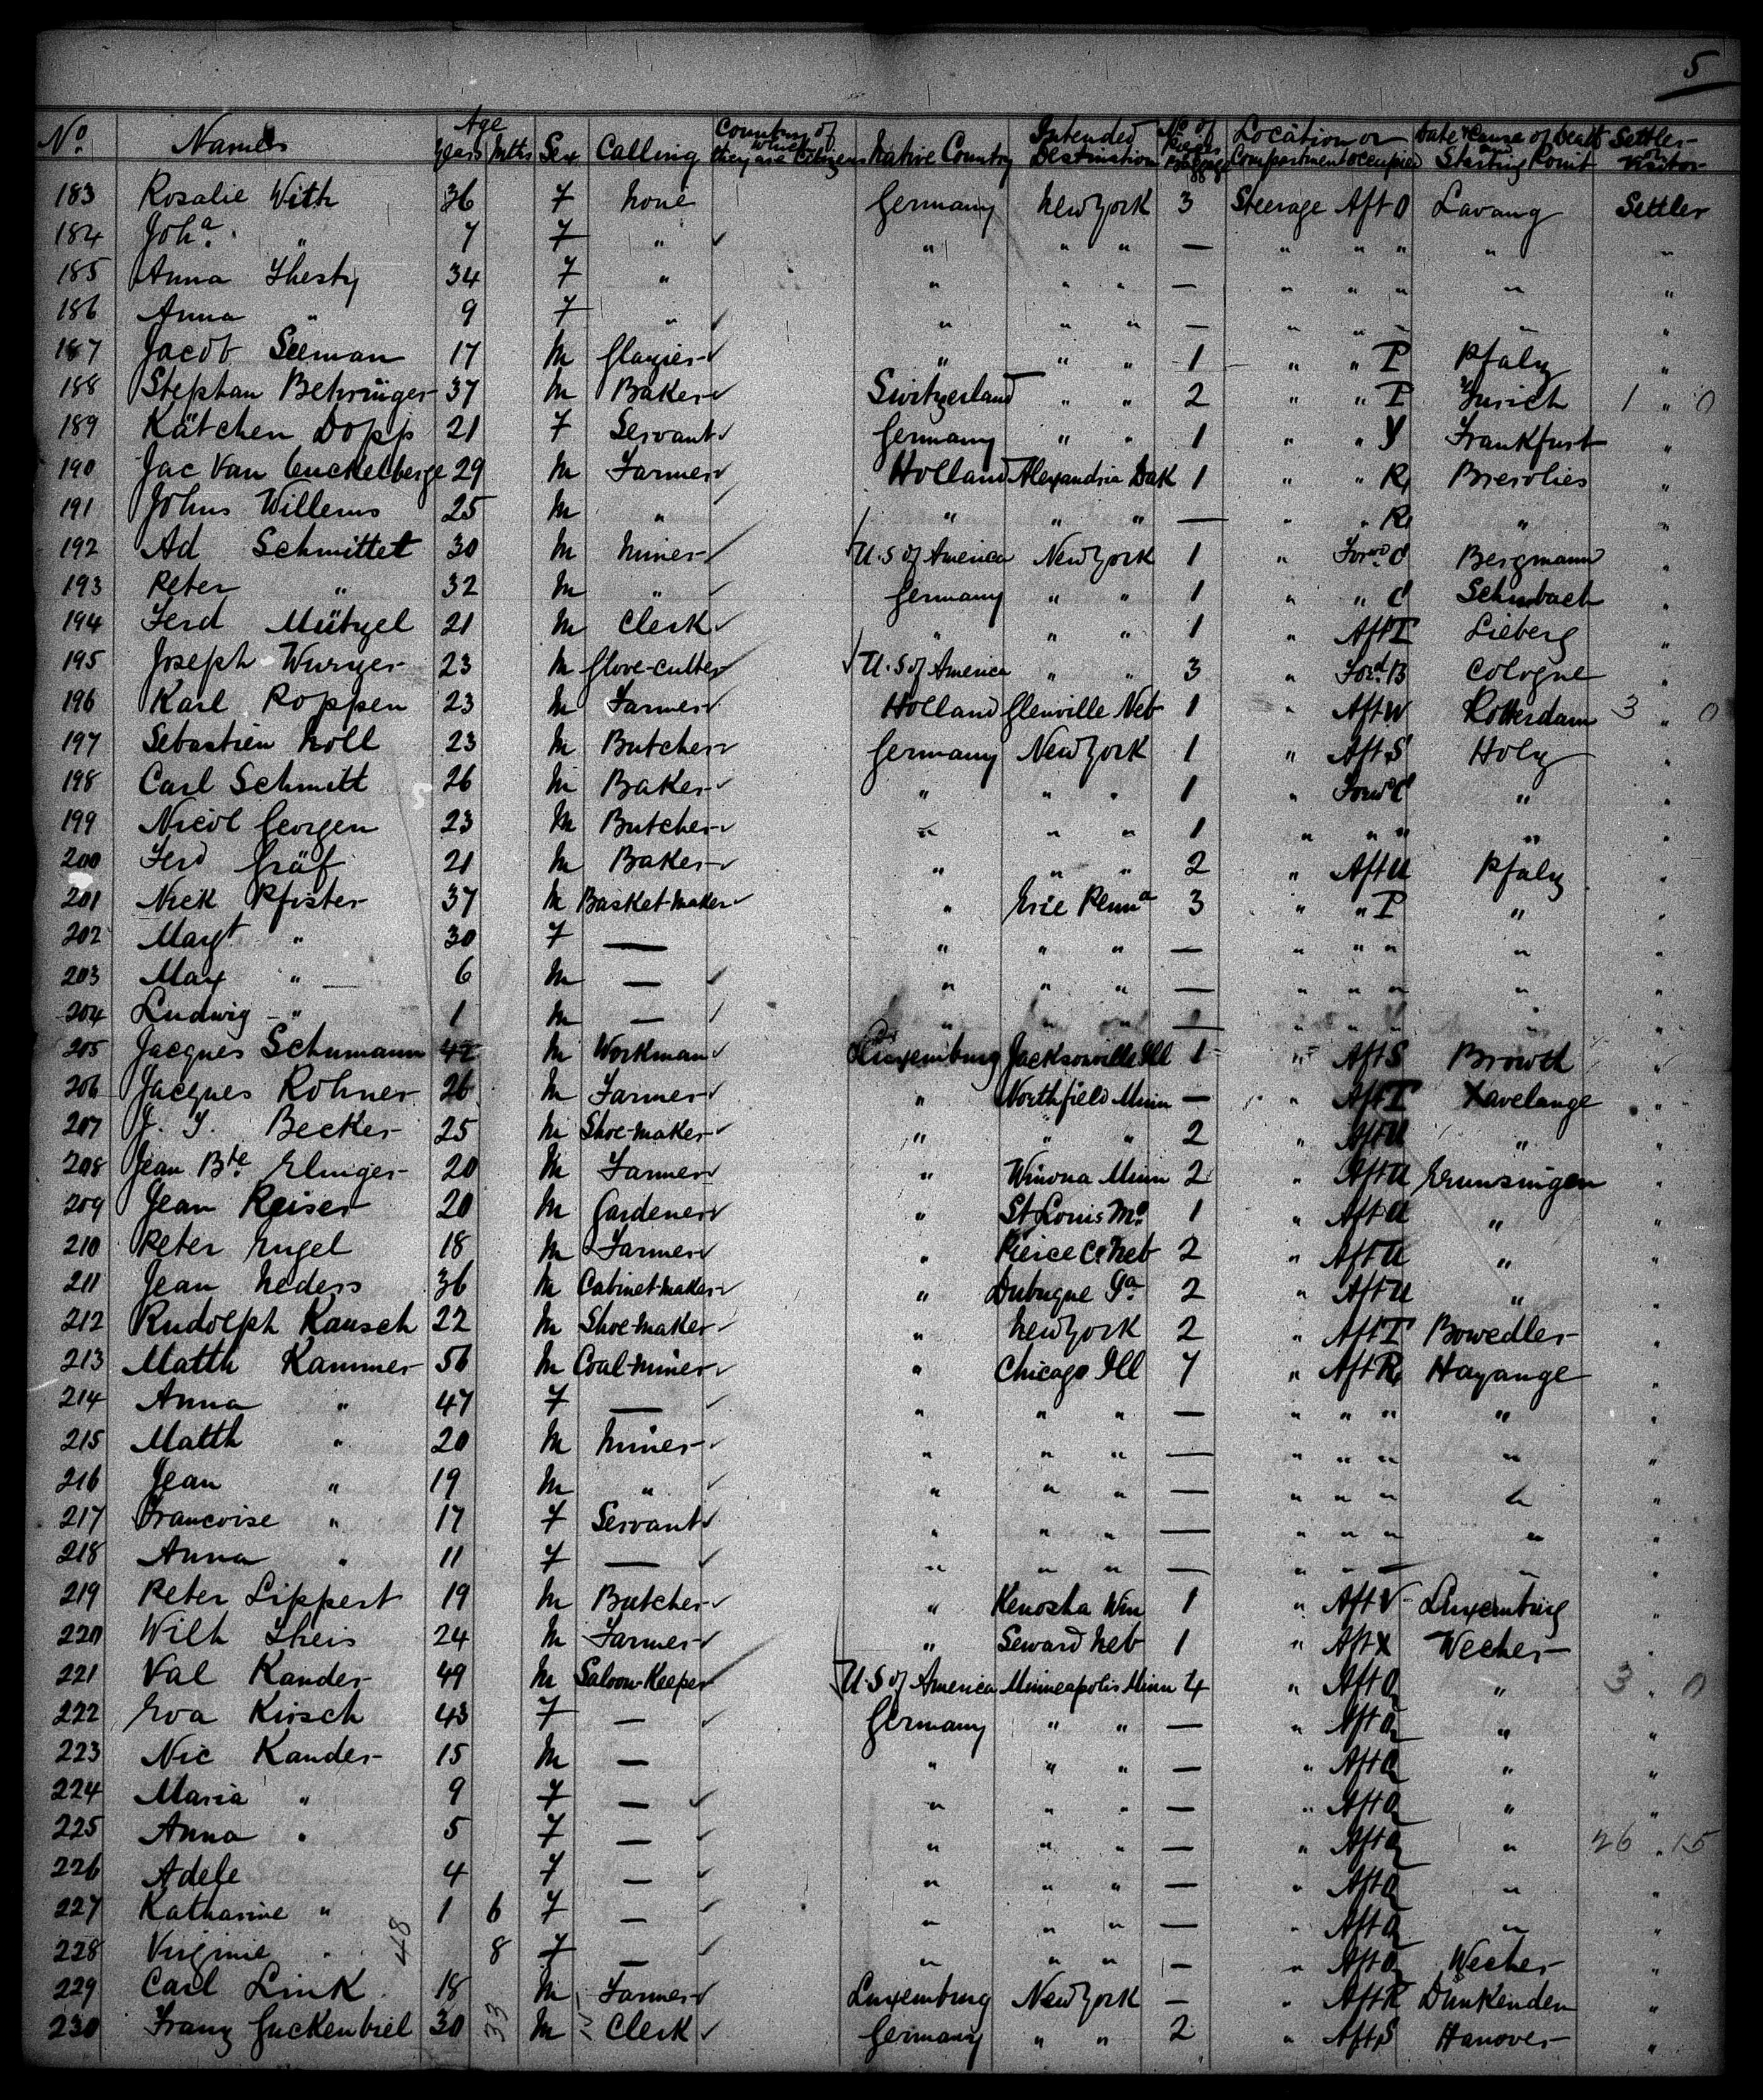 5
No Names Age Years Mths Sex Calling Country of which they are Citizens Native Country Intended Destination No of Pieces Baggage Location or Compartment occupied Date & Cause of Death and Starting Point Settler or Visitor
183 Rosalie With 36 F None Germany New York 3 Steerage Aft O Lavang Settler
184 Joha " 7 F " ✓ " " " — " " " " "
185 Anna Thesty 34 F " " " " — " " " " "
186 Anna " 9 F " ✓ " " " — " " " " "
187 Jacob Seeman 17 M Glazier ✓ " " " 1 " " T Pfalz "
188 Stephan Behringer 37 M Baker ✓ Switzerland " " 2 " " T Zurich 1 " 0
189 Kätchen Dopp 21 F Servant ✓ Germany " " 1 " " Y Frankfurt "
190 Jac Van Cuckelberge 29 M Farmer ✓ Holland Alexandria Dak 1 " " R Biervlies "
191 Johns Willems 25 M " ✓ " " " — " " R " "
192 Ad Schmittet 30 M Miner ✓ U.S of America New York 1 " Forwd C Bergmann "
193 Peter " 32 M " ✓ Germany " " 1 " " C "
194 Ferd Mützel 21 M Clerk ✓ " " " 1 " Aft T Lieberg "
195 Joseph Wurzer 23 M Glove-cutter ✓ U.S of America " " 3 " Ford B Cologne "
196 Karl Roppen 23 M Farmer ✓ Holland Glenville Neb 1 " Aft W Rotterdam 3 " 0
197 Sebastien Noll 23 M Butcher ✓ Germany New York 1 " Aft S Holz "
198 Carl Schmitt 26 M Baker ✓ " " " 1 " Forwd C " "
199 Nicol Georgen 23 M Butcher ✓ " " " 1 " " " " "
200 Ferd Gräf 21 M Baker ✓ " " " 2 " Aft U Pfalz "
201 Nick Pfister 37 M Basket-maker ✓ " Erie Penna 3 " " T " "
202 Margt " 30 F — " " " — " " " " "
203 Max " 6 M — ✓ " " " — " " " " "
204 Ludwig " 1 M — ✓ " " " — " " " " "
205 Jacques Schumann 42 M Workman ✓ Luxemburg Jacksonville Ill 1 " Aft S "
206 Jacques Rohner 26 M Farmer ✓ " Northfield Minn — " Aft T Xavelange "
207 J. J. Becker 25 M Shoe-maker ✓ " " " 2 " Aft U " "
208 Jean Bte Elinger 20 M Farmer ✓ " Winona Minn 2 " Aft U Erunsingen "
209 Jean Reiser 20 M Gardener ✓ " St Louis Mo 1 " Aft U " "
210 Peter Engel 18 M Farmer ✓ " Pierce Co Neb 2 " Aft U " "
211 Jean Neders 36 M Cabinet-maker ✓ " Dubuque Ia 2 " Aft U " "
212 Rudolph Kausch 22 M Shoe-maker ✓ " New York 2 " Aft T Bowedler "
213 Matth Kammer 56 M Coal-miner ✓ " Chicago Ill 7 " Aft R Hayange "
214 Anna " 47 F — ✓ " " " — " " " " "
215 Matth " 20 M Miner ✓ " " " — " " " " "
216 Jean " 19 M " ✓ " " " — " " " " "
217 Francoise " 17 F Servant ✓ " " " — " " " " "
218 Anna " 11 F — ✓ " " " — " " " " "
219 Peter Lippert 19 M Butcher ✓ " Kenosha Win 1 " Aft V Luxemburg "
220 Wilh Theis 24 M Farmer ✓ " Seward Neb 1 " Aft X Wecker "
221 Val Kander 49 M Saloon-Keeper ✓ U.S of America Minneapolis Minn 4 " Aft Q " 3 " 0
222 Eva Kirsch 43 F — ✓ Germany " " — " Aft Q " "
223 Nic Kander 15 M — " " " — " Aft Q " "
224 Maria " 9 F — ✓ " " " — " Aft Q " "
225 Anna " 5 F — ✓ " " " — " Aft Q " 26 . 15
226 Adele 4 F — ✓ " " " — " Aft Q " "
227 Katharine " 1 6 F — ✓ " " " — " Aft Q " "
228 Virginie " 8 F — ✓ " " " — " Aft Q Wecker "
229 Carl Link 18 M Farmer ✓ Luxemburg New York — " Aft R Dunkenden "
230 Franz Guckenbiel 30 M Clerk ✓ Germany " " 2 " Aft S Hanover "
48
33